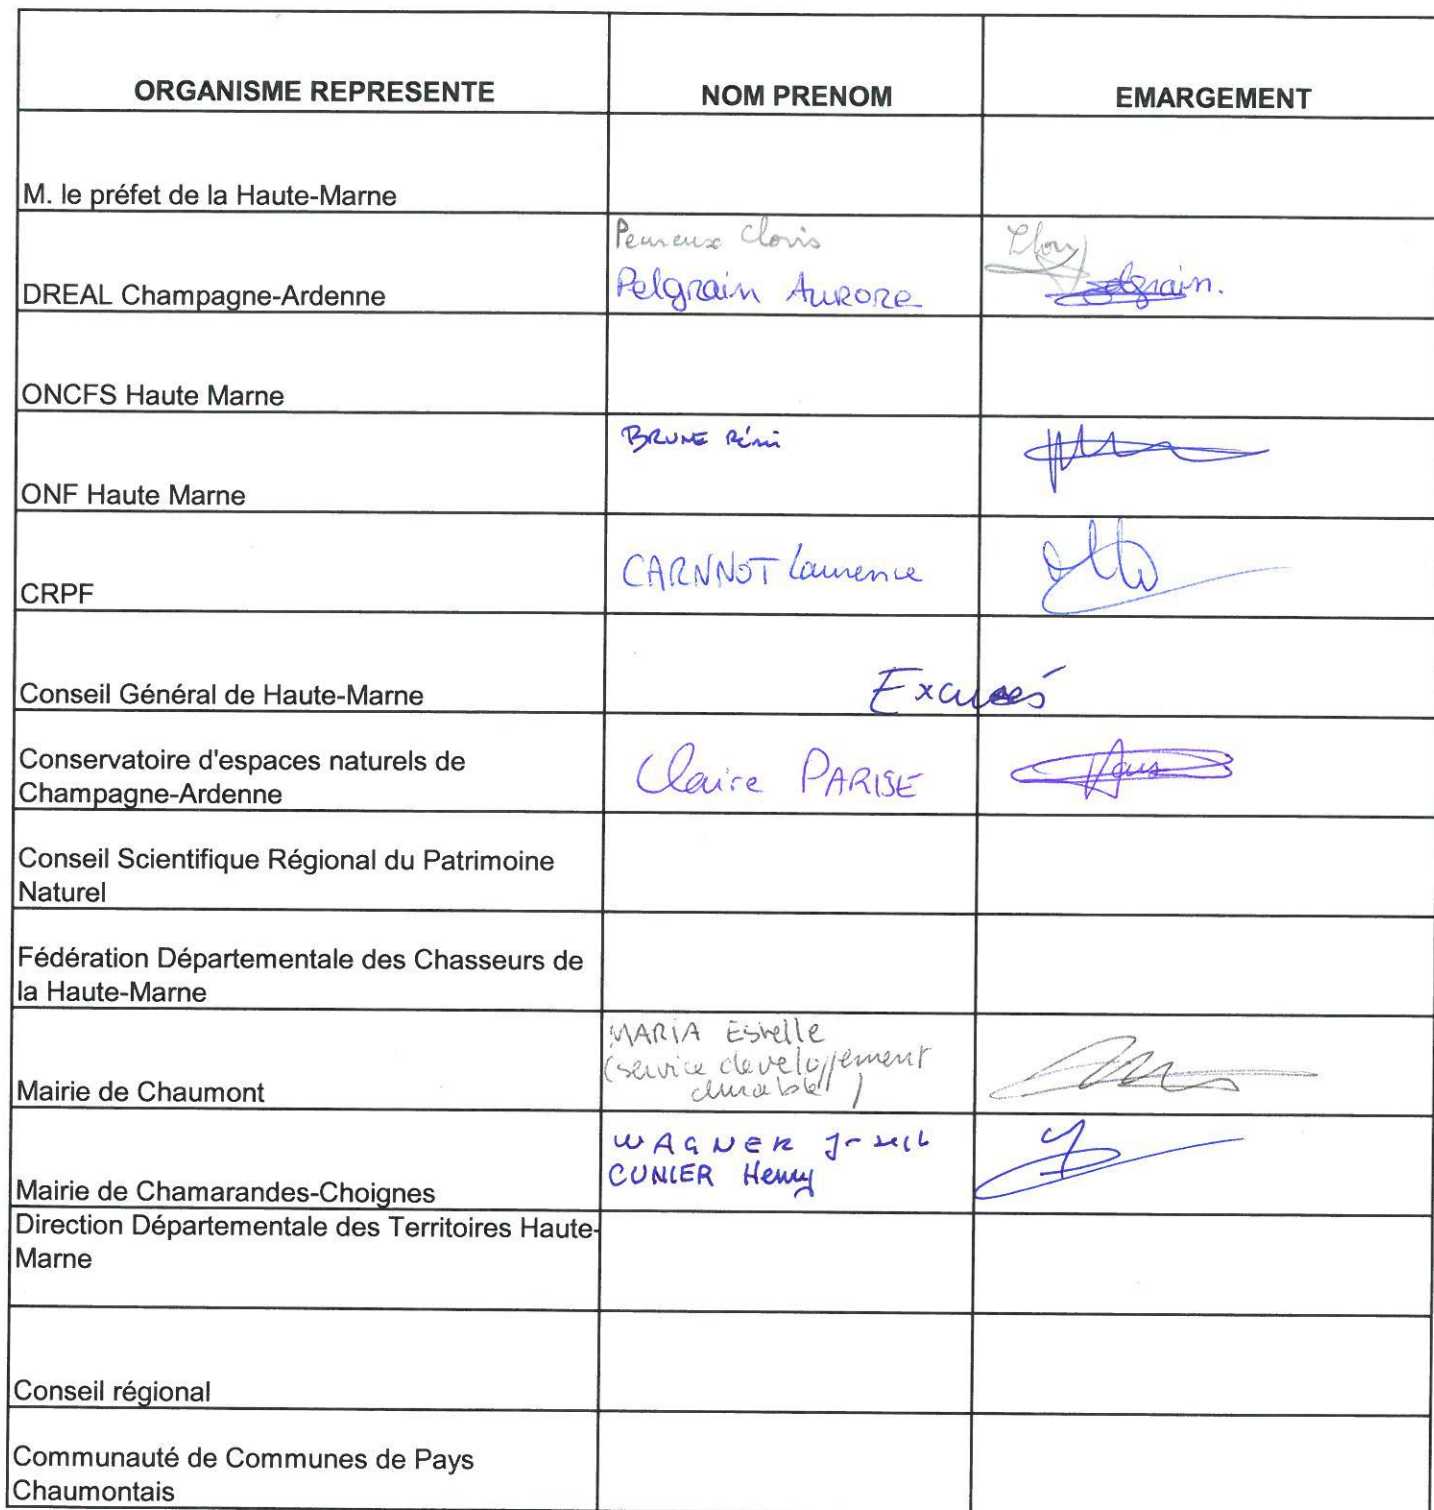 ORGANISME REPRESENTE
NOM PRENOM
EMARGEMENT
M. le préfet de la Haute-Marne
DREAL Champagne-Ardenne
Clovis
Pelgrain AURORE
Pelgrain.
ONCFS Haute Marne
ONF Haute Marne
BRUNE Rémi
CRPF
CARNNOT Laurence
Conseil Général de Haute-Marne
Excusés
Conservatoire d'espaces naturels de
Champagne-Ardenne
Claire PARISE
Conseil Scientifique Régional du Patrimoine
Naturel
Fédération Départementale des Chasseurs de
la Haute-Marne
Mairie de Chaumont
MARIA Estelle
(service developpement
durable)
Mairie de Chamarandes-Choignes
WAGNER
CUNIER Henry
Direction Départementale des Territoires Haute-
Marne
Conseil régional
Communauté de Communes de Pays
Chaumontais